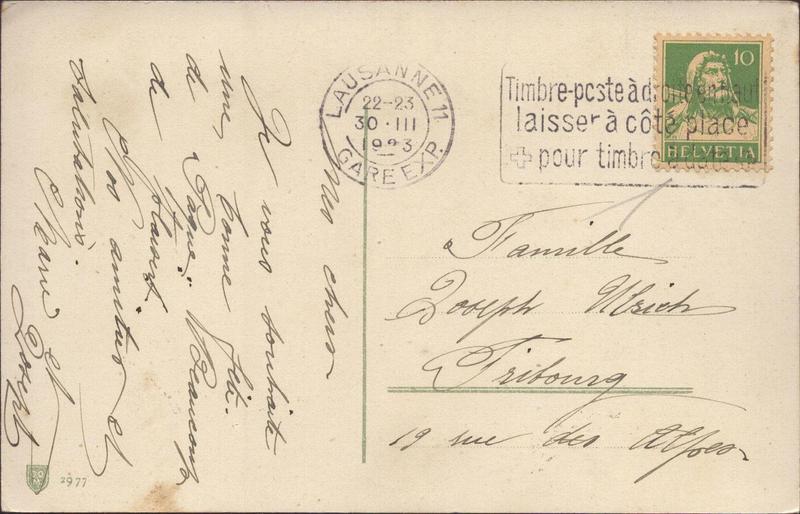 Mes chers
Je vous souhaite
une bonne fête
de Pâques. Beaucoup
de plaisir
Nos amitiés et
Salutations.
Marie et
Joseph
2977
LAUSANNE 11
22-23
30·III
1923
GARE EXP.
Timbre-poste à droite en haut
laisser à côté place
pour timbre à date
10
HELVETIA
Famille
Joseph Ulrich
Fribourg
19 rue des Alpes